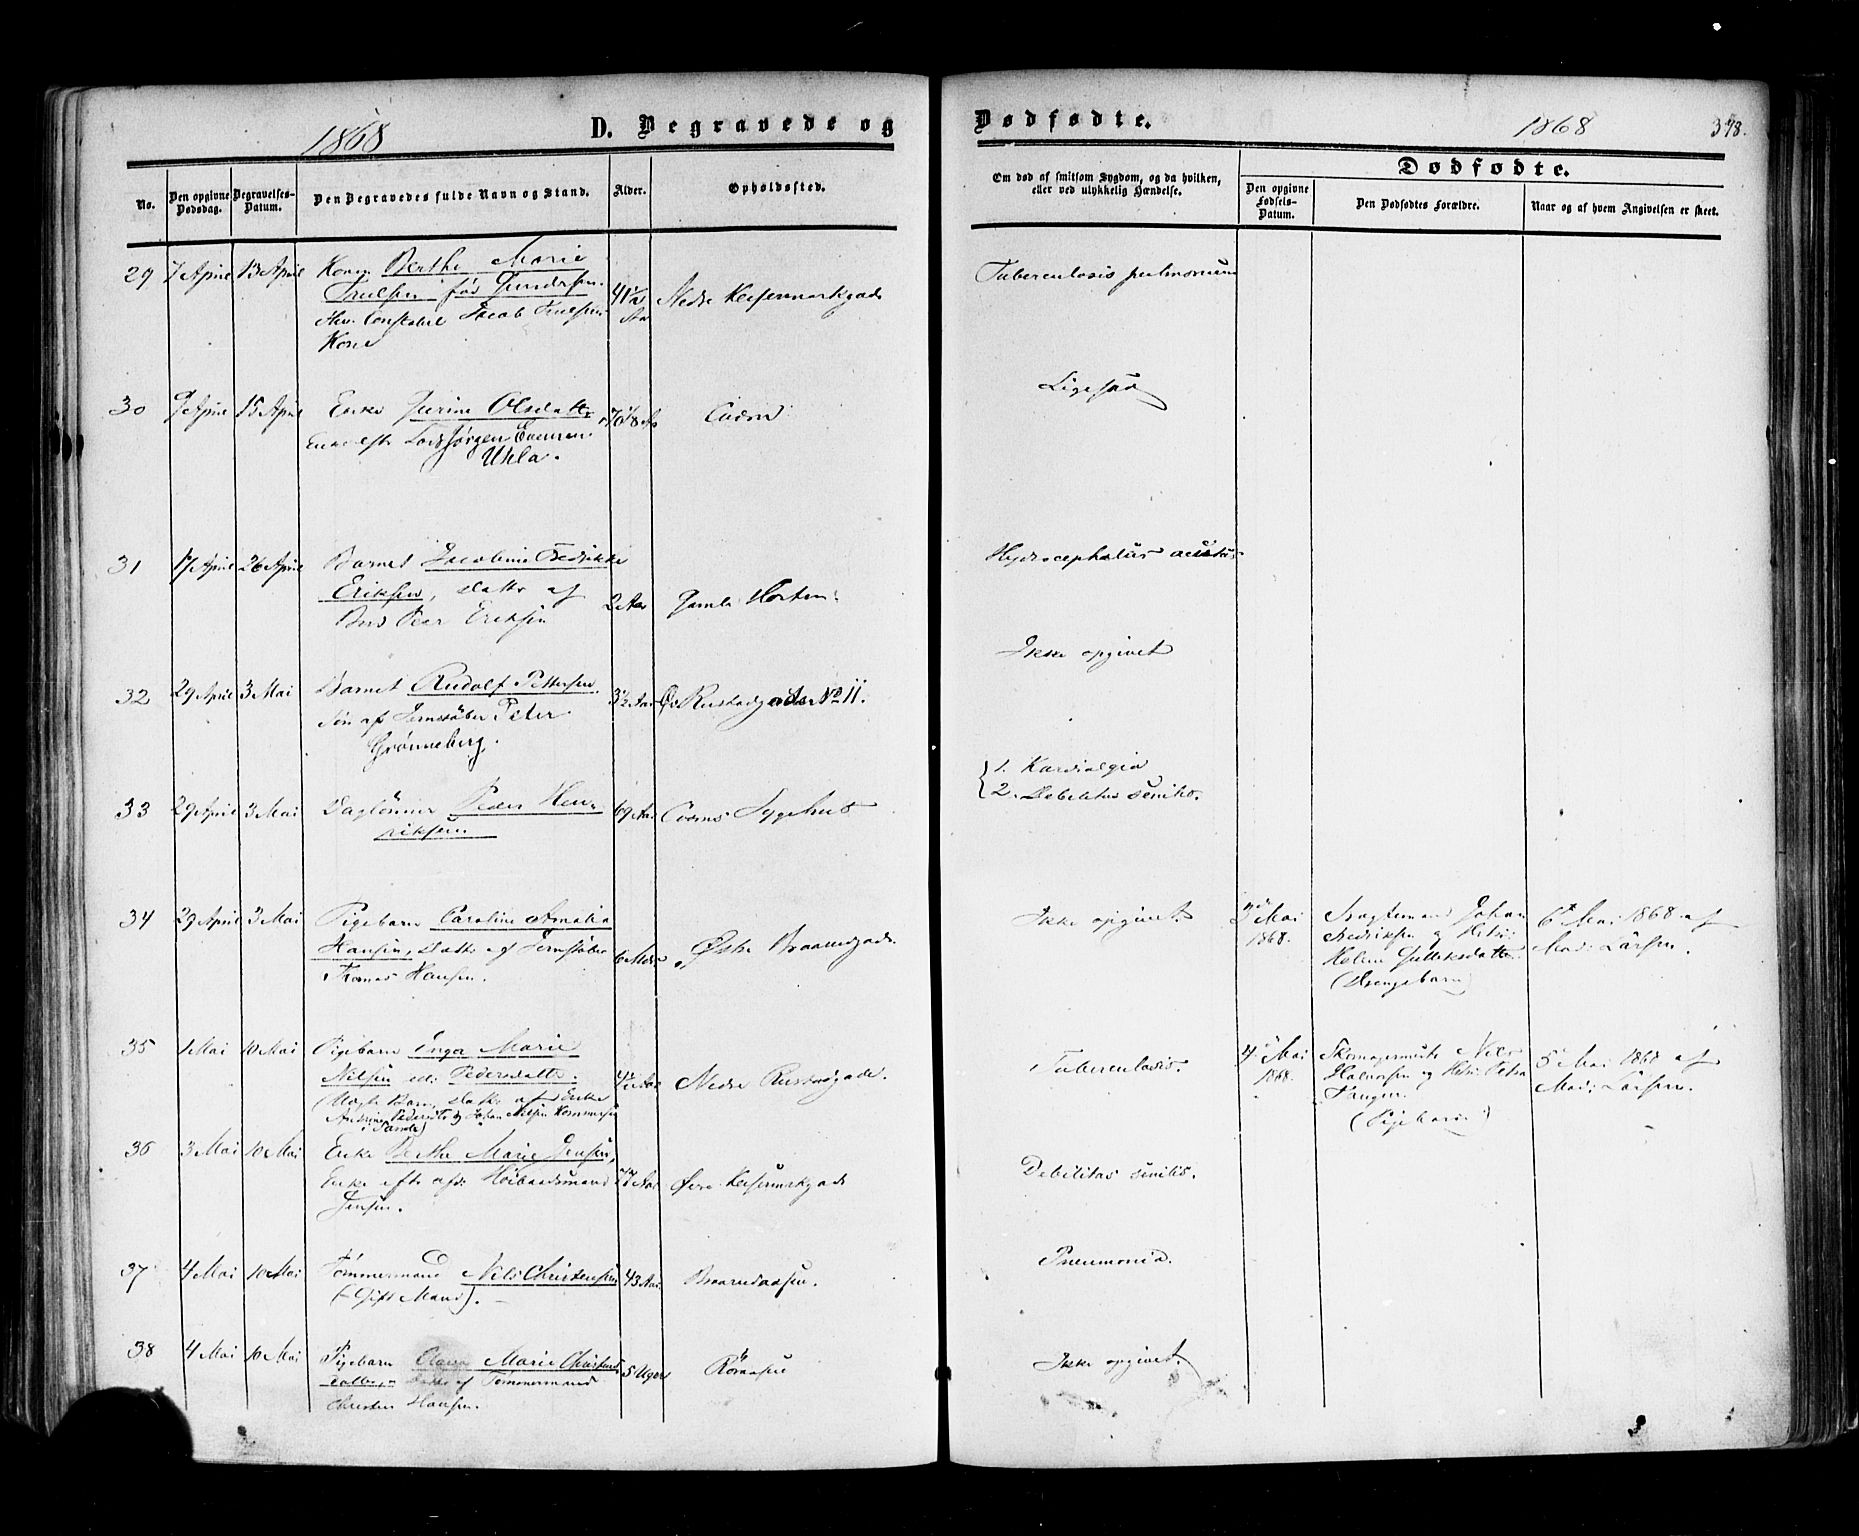 1868
D. Begravede og
Dødfødte.
1868
378.
No.
Den opgivne Dødsdag.
Begravelses-Datum.
Den Begravedes fulde Navn og Stand.
Alder.
Opholdssted.
Om død af smitsom Sygdom, og da hvilken, eller ved ulykkelig Hændelse.
Dødfødte.
Den opgivne Fødsels-Datum.
Den Dødfødtes Forældre.
Naar og af hvem Angivelsen er skeet.
29 7 April 13 April Konen Berthe Marie
Trulsen fød Gundersen.
Constabel Jacob Trulsens
Kone
41 1/2 Aar
Nedre Keisemarkgade
Tuberculosis pulmonum
30 9 April 15 April Enke Jurine Olsdatter
Enke efter Lods Jørgen Evensen
Uhla.
Ligesaa
31 17 April 26 April Barnet Jacobine Fredrikke
Eriksen, Datter af
Peer Eriksen
2 Aar
Gamle Horten
Hydrocephalus acutus
32 29 April 3 Mai Barnet Rudolf Pettersen
Søn af Jernstøber Peter
Grønneberg.
3 1/2 Aar
Rustadgaden No 11.
Ikke opgivet
33 29 April 3 Mai Daglønner Peder Hen-
riksen
69 Aar
Sygehus
1. Kardialgia
2. Debilitas senilis.
34 29 April 3 Mai Pigebarn Caroline Amalia
Hansen, Datter af Jernstøber
Thomas Hansen.
6 Mdr
Østre Braarudgade.
Ikke opgivet.
3 Mai
1868.
Fragtemand Johan
Fredriksen og Hstr:
Helene Gulliksdatter
(Drengebarn)
6 Mai 1868 af
Mad: Larsen.
35 1 Mai 10 Mai Pigebarn Inga Marie
Nilsen ell: Pedersdatter.
(Uægte Barn, Datter af Enke
Andrine Pedersdtr og Johan Nilsen Kommersøe
i Sande)
4 1/2 Aar
Nedre Rustadgade.
Tuberculosis.
4 Mai
1868.
Skomagermester Nils
Halvorsen og Hstr: Petra
Haugen.
(Pigebarn)
5 Mai 1868 af
Mad: Larsen.
36 3 Mai 10 Mai Enke Berthe Marie Jensen,
Enke efter afd: Høibaadsmand
Jensen.
77 Aar
Øvre Keisemarkgade
Debilitas senilis.
37 4 Mai 10 Mai Tømmermand Nils Christensen
(Gift Mand).
43 Aar
Braarudaasen.
Pneumonia.
38 4 Mai 10 Mai Pigebarn Marie Christens
datter, Datter af Tømmermand
Christen Hansen.
5 Uger
Rømaasen
Ikke opgivet.